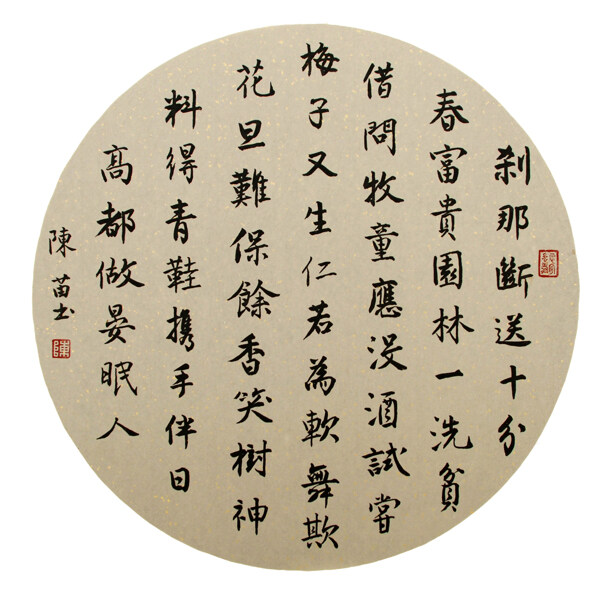 刹那斷送十分
春富貴園林一洗貧
借問牧童應没酒試嘗
梅子又生仁若為軟舞欺
花旦難保餘香笑樹神
料得青鞋携手伴日
高都做晏眠人
陳苗书
陳